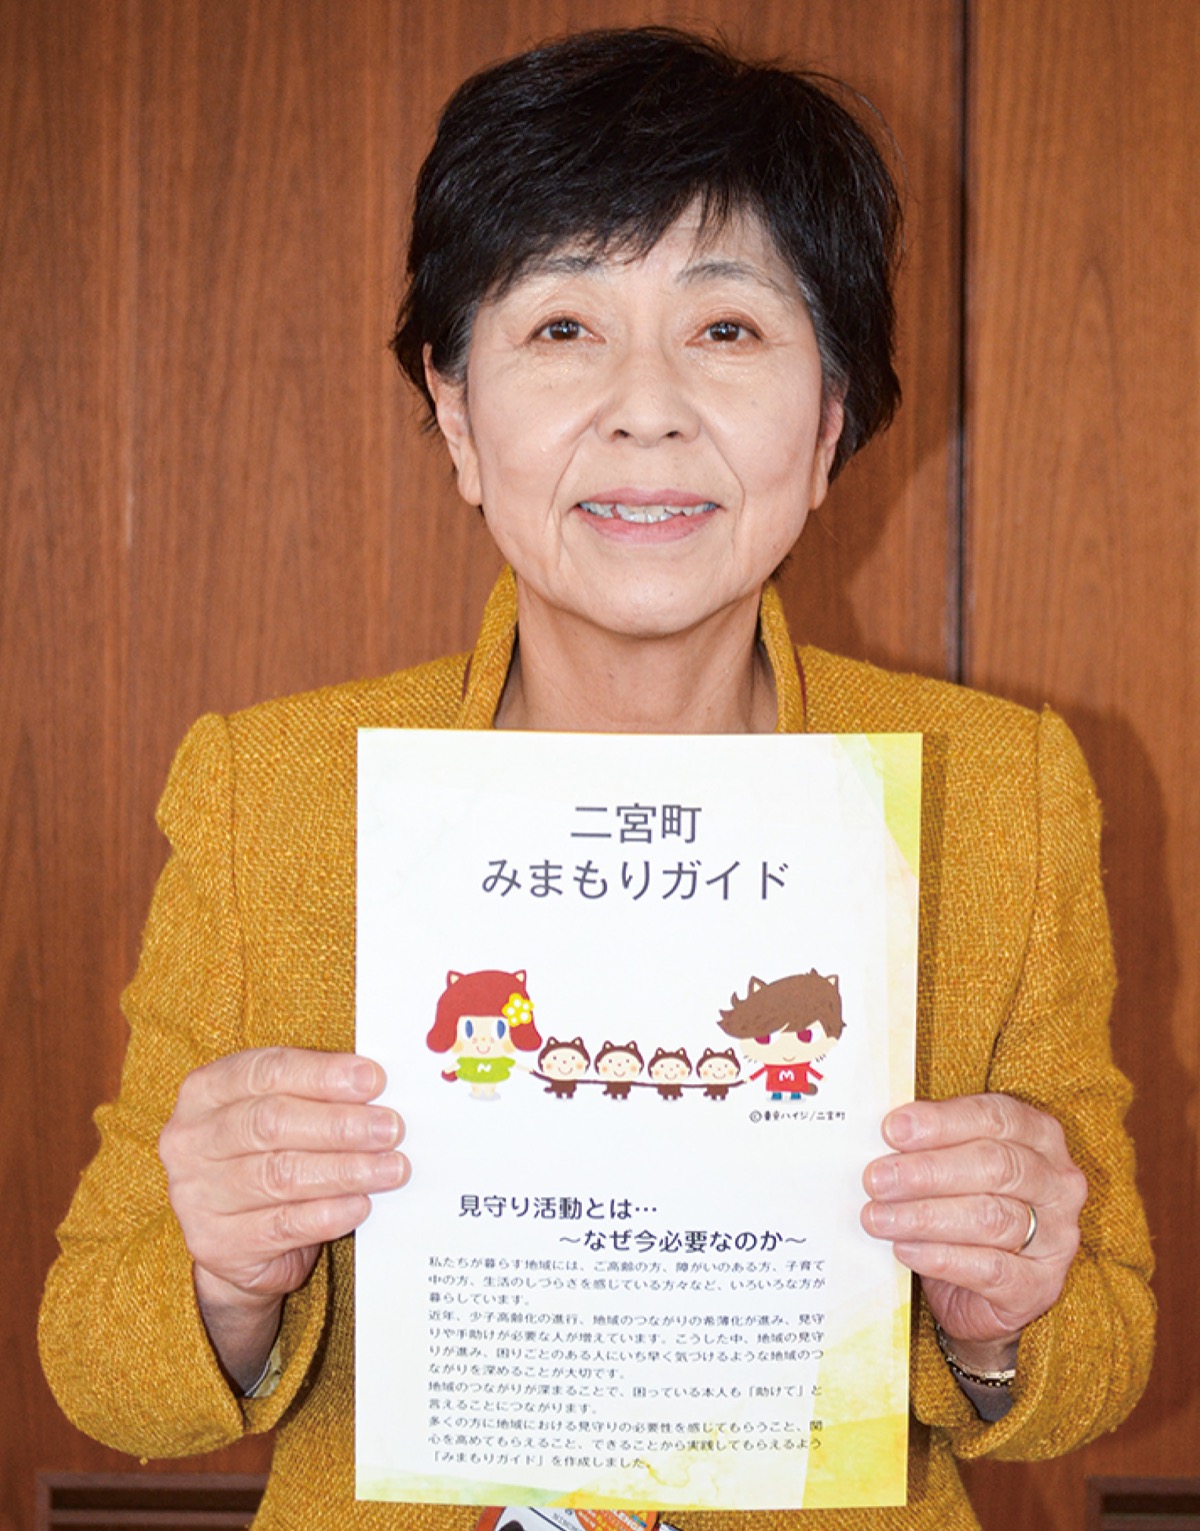 二宮町
みまもりガイド
N
M
©東京ハイジ/二宮町
見守り活動とは…
～なぜ今必要なのか～
私たちが暮らす地域には、ご高齢の方、障がいのある方、子育て
中の方、生活のしづらさを感じている方々など、いろいろな方が
暮らしています。
近年、少子高齢化の進行、地域のつながりの希薄化が進み、見守
りや手助けが必要な人が増えています。こうした中、地域の見守
りが進み、困りごとのある人にいち早く気づけるような地域のつ
ながりを深めることが大切です。
地域のつながりが深まることで、困っている本人も「助けて」と
言えることにつながります。
多くの方に地域における見守りの必要性を感じてもらうこと、関
心を高めてもらえること、できることから実践してもらえるよう
「みまもりガイド」を作成しました。